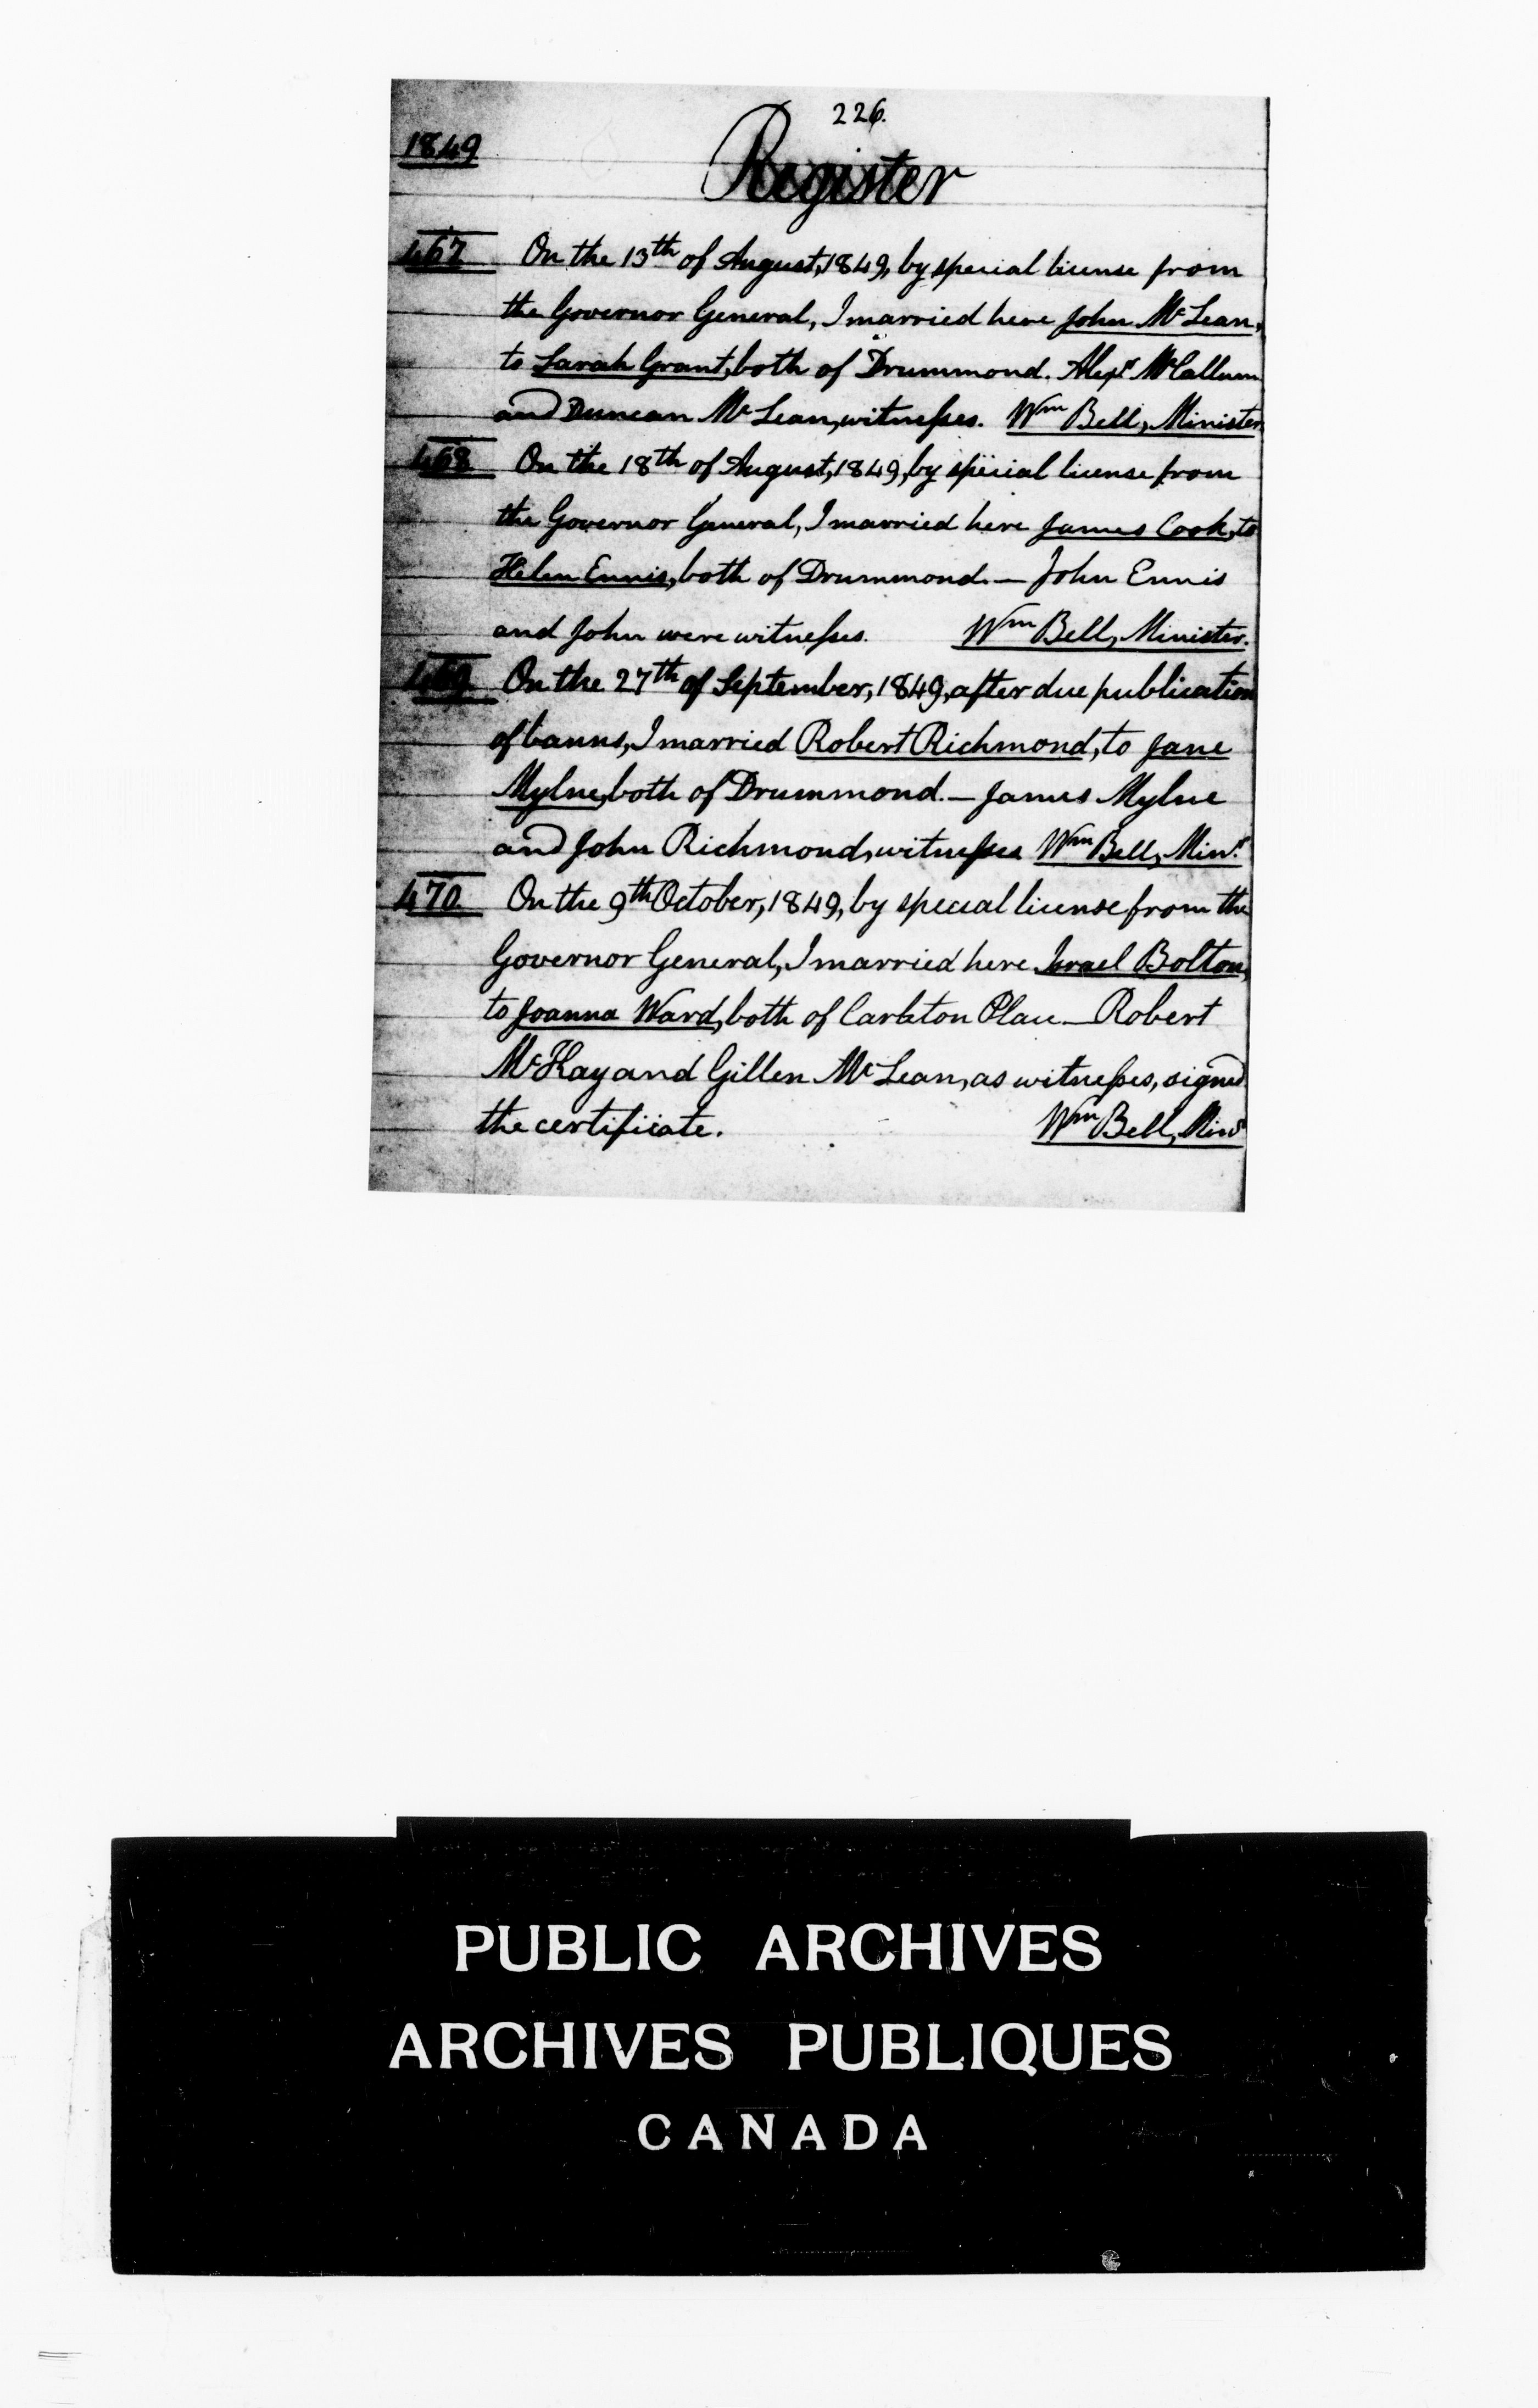 226.
1849
Register
467 On the 13th of August, 1849, by special license from
the Governor General, I married here John McLean,
to Sarah Grant, both of Drummond. Alexr McCallum
and Duncan McLean, witnesses. Wm Bell, Minister
468 On the 18th of August, 1849, by special license from
the Governor General, I married here James Cook, to
Helen Ennis, both of Drummond. — John Ennis
and John were witnesses. Wm Bell, Minister.
469 On the 27th of September, 1849, after due publication
of banns, I married Robert Richmond, to Jane
Mylne, both of Drummond. — James Mylne
and John Richmond, witnesses Wm Bell, Minr.
470. On the 9th October, 1849, by special license from the
Governor General, I married here Israel Bolton,
to Joanna Ward, both of Carleton Place. — Robert
McKay and Gillen McLean, as witnesses, signed
the certificate. Wm Bell, Minr
PUBLIC ARCHIVES
ARCHIVES PUBLIQUES
CANADA